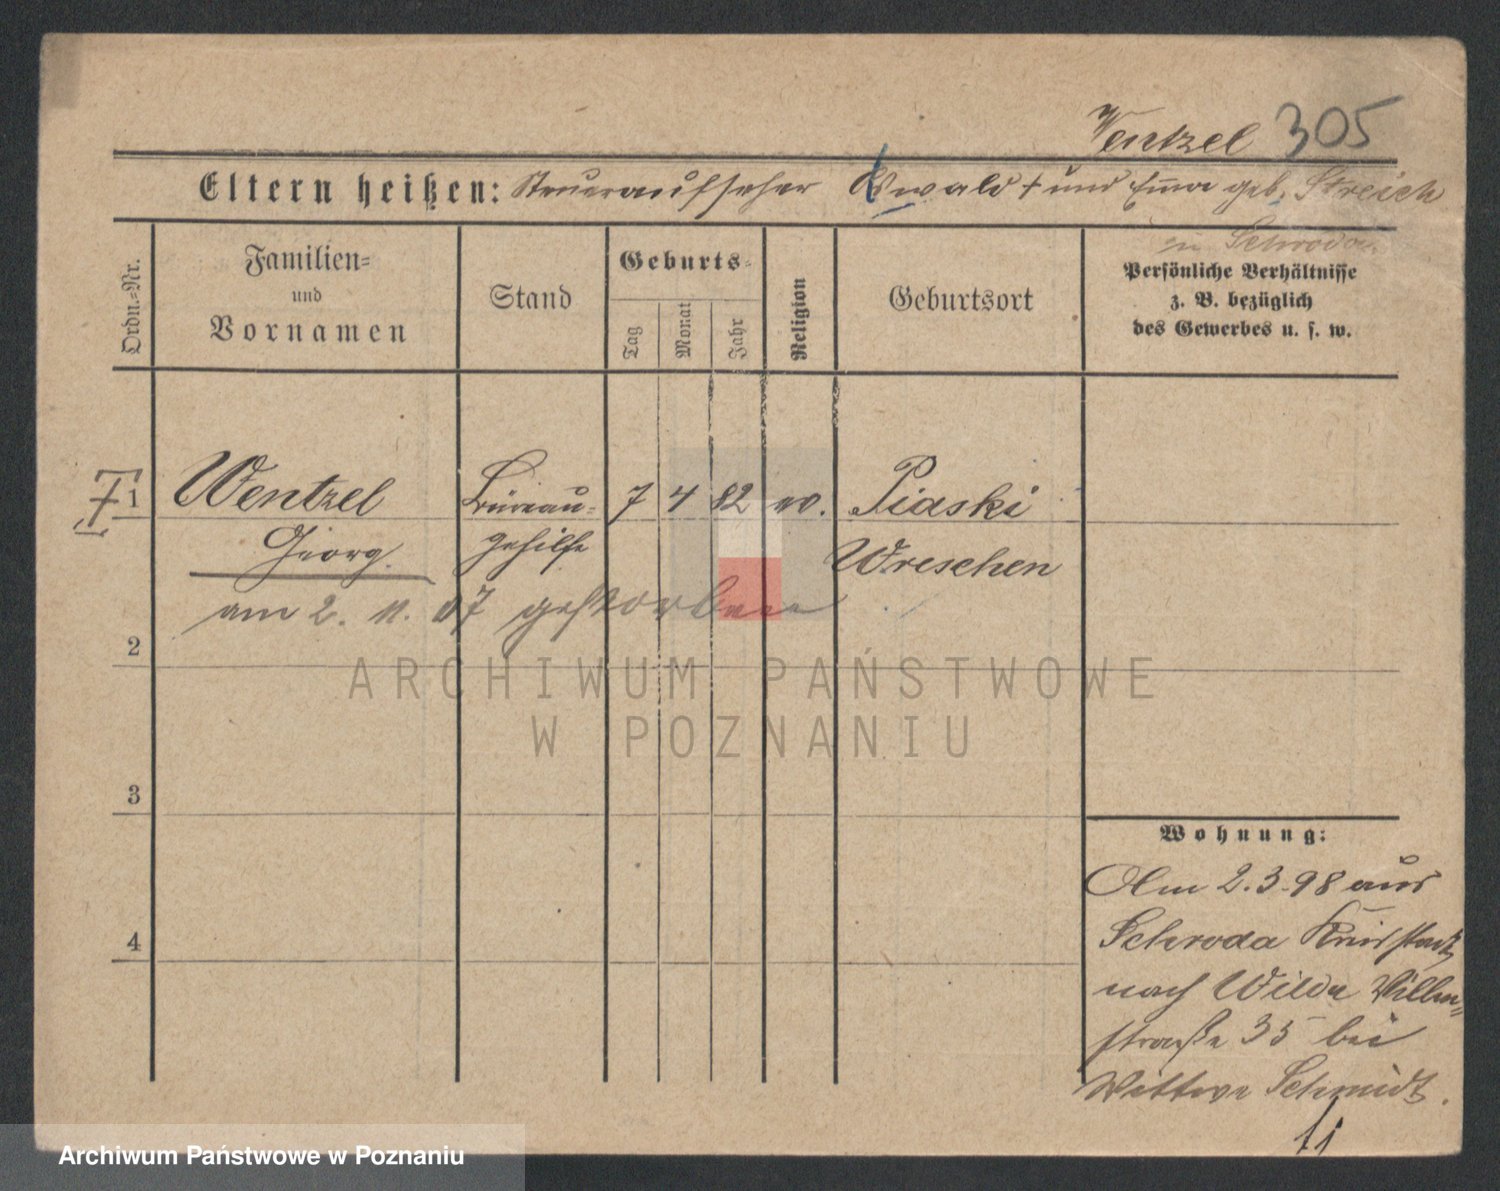 Wentzel 305
Eltern heißen: Steueraufseher Ewald † und Emma geb. Streich
in Schroda.
Ordn.=Nr.
Familien=
und
Vornamen
Stand
Geburts=
Tag
Monat
Jahr
Religion
Geburtsort
Persönliche Verhältnisse
z. B. bezüglich
des Gewerbes u. s. w.
1 Wentzel Büreau= 7 4 82 ev. Piaski
Georg. gehilfe Wreschen
am 2. 11. 07 gestorben
2
3
4
Wohnung:
Am 2.3.98 aus
Schroda Kreisstadt
nach Wilda Villen=
straße 35 bei
Wittwe Schmidt.
ARCHIWUM PAŃSTWOWE
W POZNANIU
Archiwum Państwowe w Poznaniu